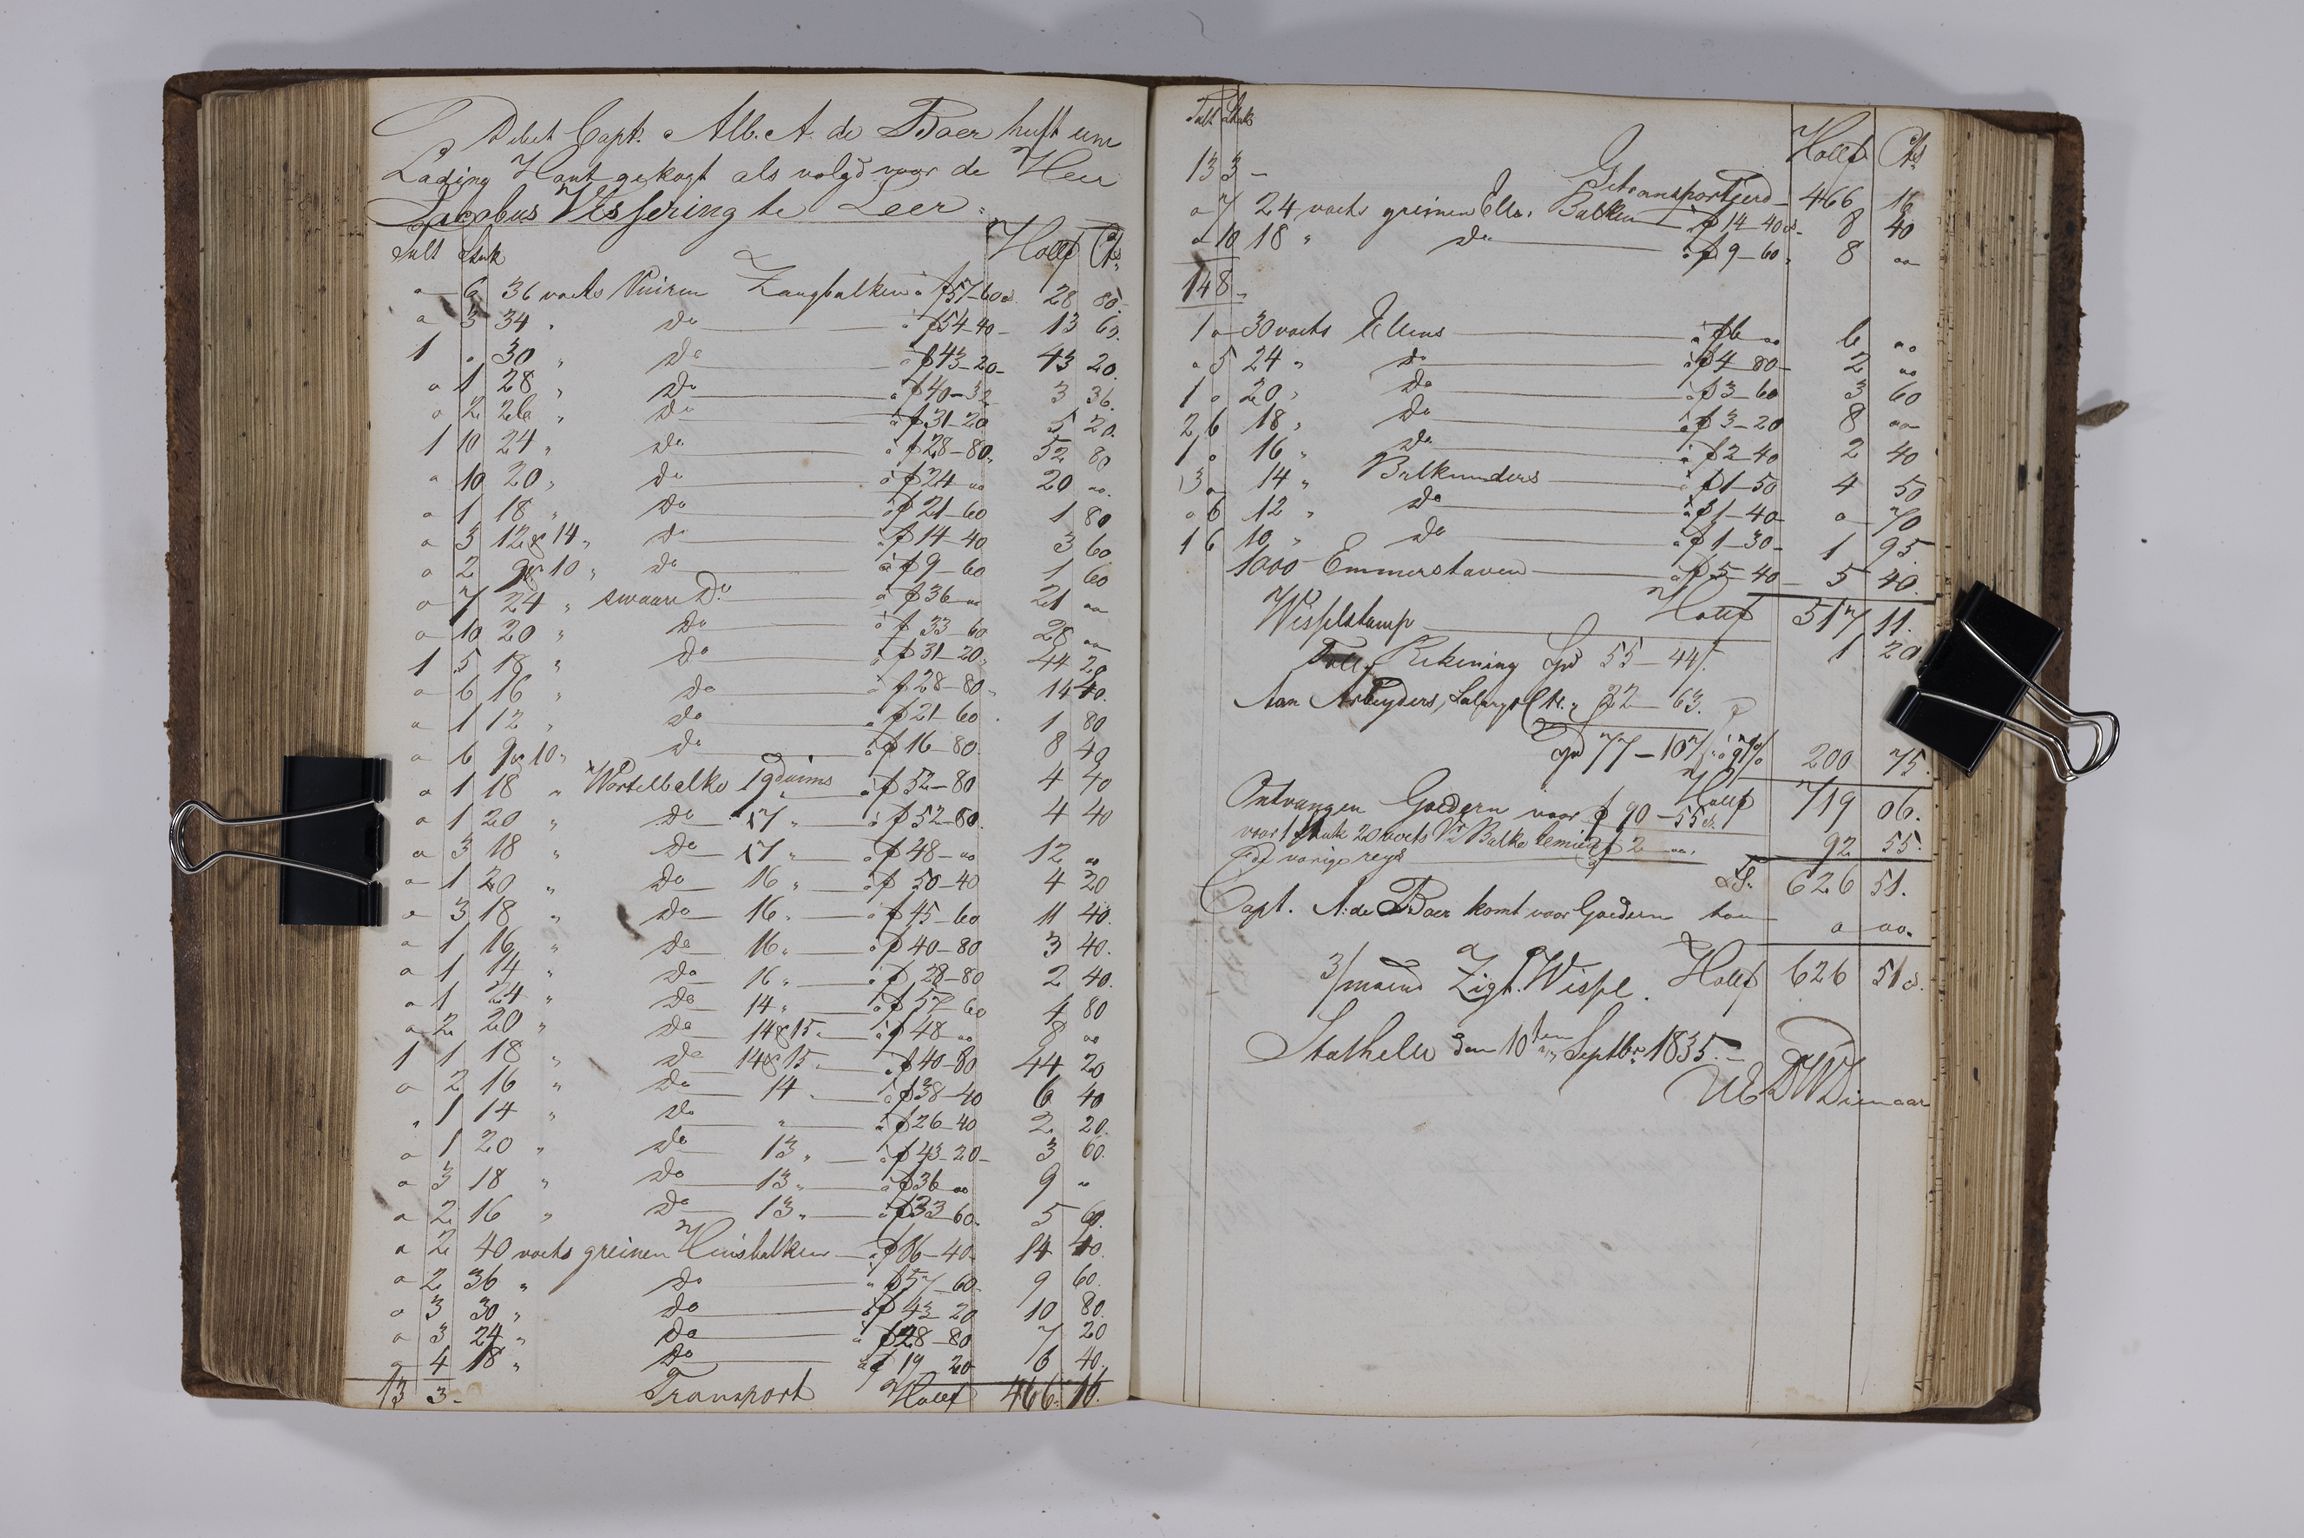 Debet Capt. Alb. A. de Boer heeft een
Lading Hout gekogt als volgd voor de Heer
Jacobus Vissering te Leer
Tult Stuk Hollf Cts
o 6 36 voets Vuiren Zaagbalken à f57-60 28 80
o 3 34 " do à f54-40 13 60
1 o 30 " do à f43-20 43 20
o 1 28 " do à f40-32 3 36
o 2 26 " do à f31-20 5 20
1 10 24 " do à f28-80 52 80
o 10 20 " do à f24 oo 20 oo
o 1 18 " do à f21-60 1 80
o 3 12 & 14 " do à f14-40 3 60
o 2 9 & 10 " do à f9-60 1 60
o 7 24 " swaare Do à f36 oo 21 oo
o 10 20 " do à f33-60 28 oo
1 5 18 " do à f31-20 44 20
o 6 16 " do à f28-80 14 40
o 1 12 " do à f21-60 1 80
o 6 9 & 10 " do à f16-80 8 40
o 1 18 " Wortelbalke 19 duims à f52-80 4 40
o 1 20 " do 17 " à f52-80 4 40
o 3 18 " do 17 " à f48-oo 12 oo
o 1 20 " do 16 " à f50-40 4 20
o 3 18 " do 16 " à f45-60 11 40
o 1 16 " do 16 " à f40-80 3 40
o 1 14 " do 16 " à f28-80 2 40
o 1 24 " do 14 " à f57-60 4 80
o 2 20 " do 14 & 15 " à f48 oo 8 oo
1 1 18 " do 14 & 15 " à f40-80 44 20
o 2 16 " do 14 " à f38-40 6 40
" 1 14 " do " à f26-40 2 20
o 1 20 " do 13 " à f43-20 3 60
o 3 18 " do 13 " à f36 oo 9 "
o 2 16 " do 13 " à f33-60 5 60
o 2 40 voets greinen Huisbalken à f86-40 14 40
o 2 36 " do à f57-60 9 60
o 3 30 " do à f43-20 10 80
o 3 24 " do à f28-80 7 20
o 4 18 " do à f19-20 6 40
13 3 Transport Hollf 466 16
Tult Stuk Hollf Cts
13 3 Getransporteerd 466 16
o 7 24 voets greinen Balken à f14-40 8 40
o 10 18 " do à f9-60 8 oo
14 8
1 o 30 voets Ellens à f6 oo 6 oo
o 5 24 " do à f4-80 2 oo
1 o 20 " do à f3-60 3 60
2 6 18 " do à f3-20 8 oo
1 o 16 " do à f2-40 2 40
3 o 14 " Balkunders à f1-50 4 50
o 6 12 " do à f1-40 o 70
1 6 10 " do à f1-30 1 95
1000 Emmerstaven à f5-40 5 40
Hollf 517 11
Wisselstamp 1 20
Toll Rekening Spd 55-44
Aan Arbeyders, Salarys &c. 22-63
Spd 77-107 200 75
Hollf 719 06
Ontvangen Goedern voor f 90-55
voor 1 stuk 20 voets Vr Balke f 2 oo
vorige reys 92 55
626 51
Capt. A. de Boer komt voor Goedern toe o oo
3/maend Zigt Wissel Hollf 626 51
Stathelle den 10ten Septbr 1835
UE DW Dienaar